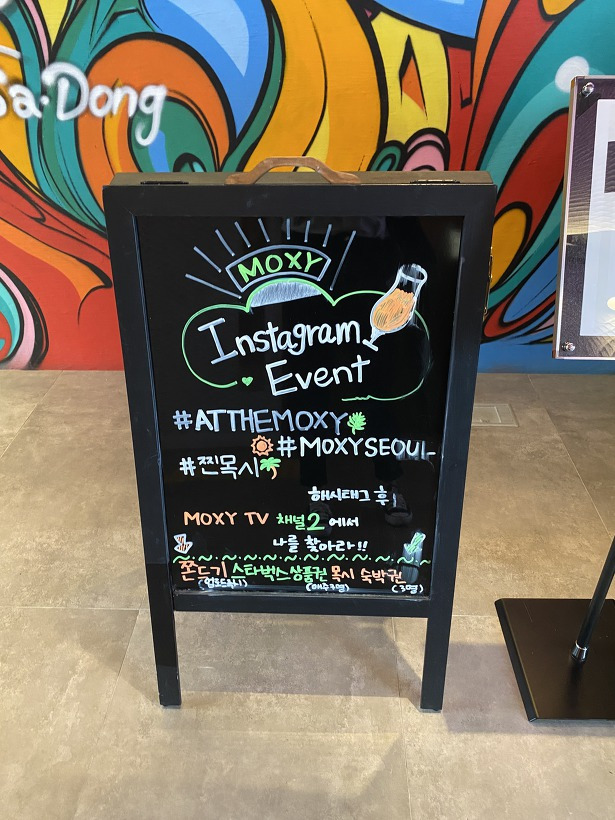 Sa·Dong
MOXY
Instagram
Event
#ATTHEMOXY
#MOXYSEOUL
#찐목시
해시태그 후,
MOXY TV 채널2 에서
나를 찾아라!!
쫀드기 스타벅스상품권 목시 숙박권
(매주3명) (3명)